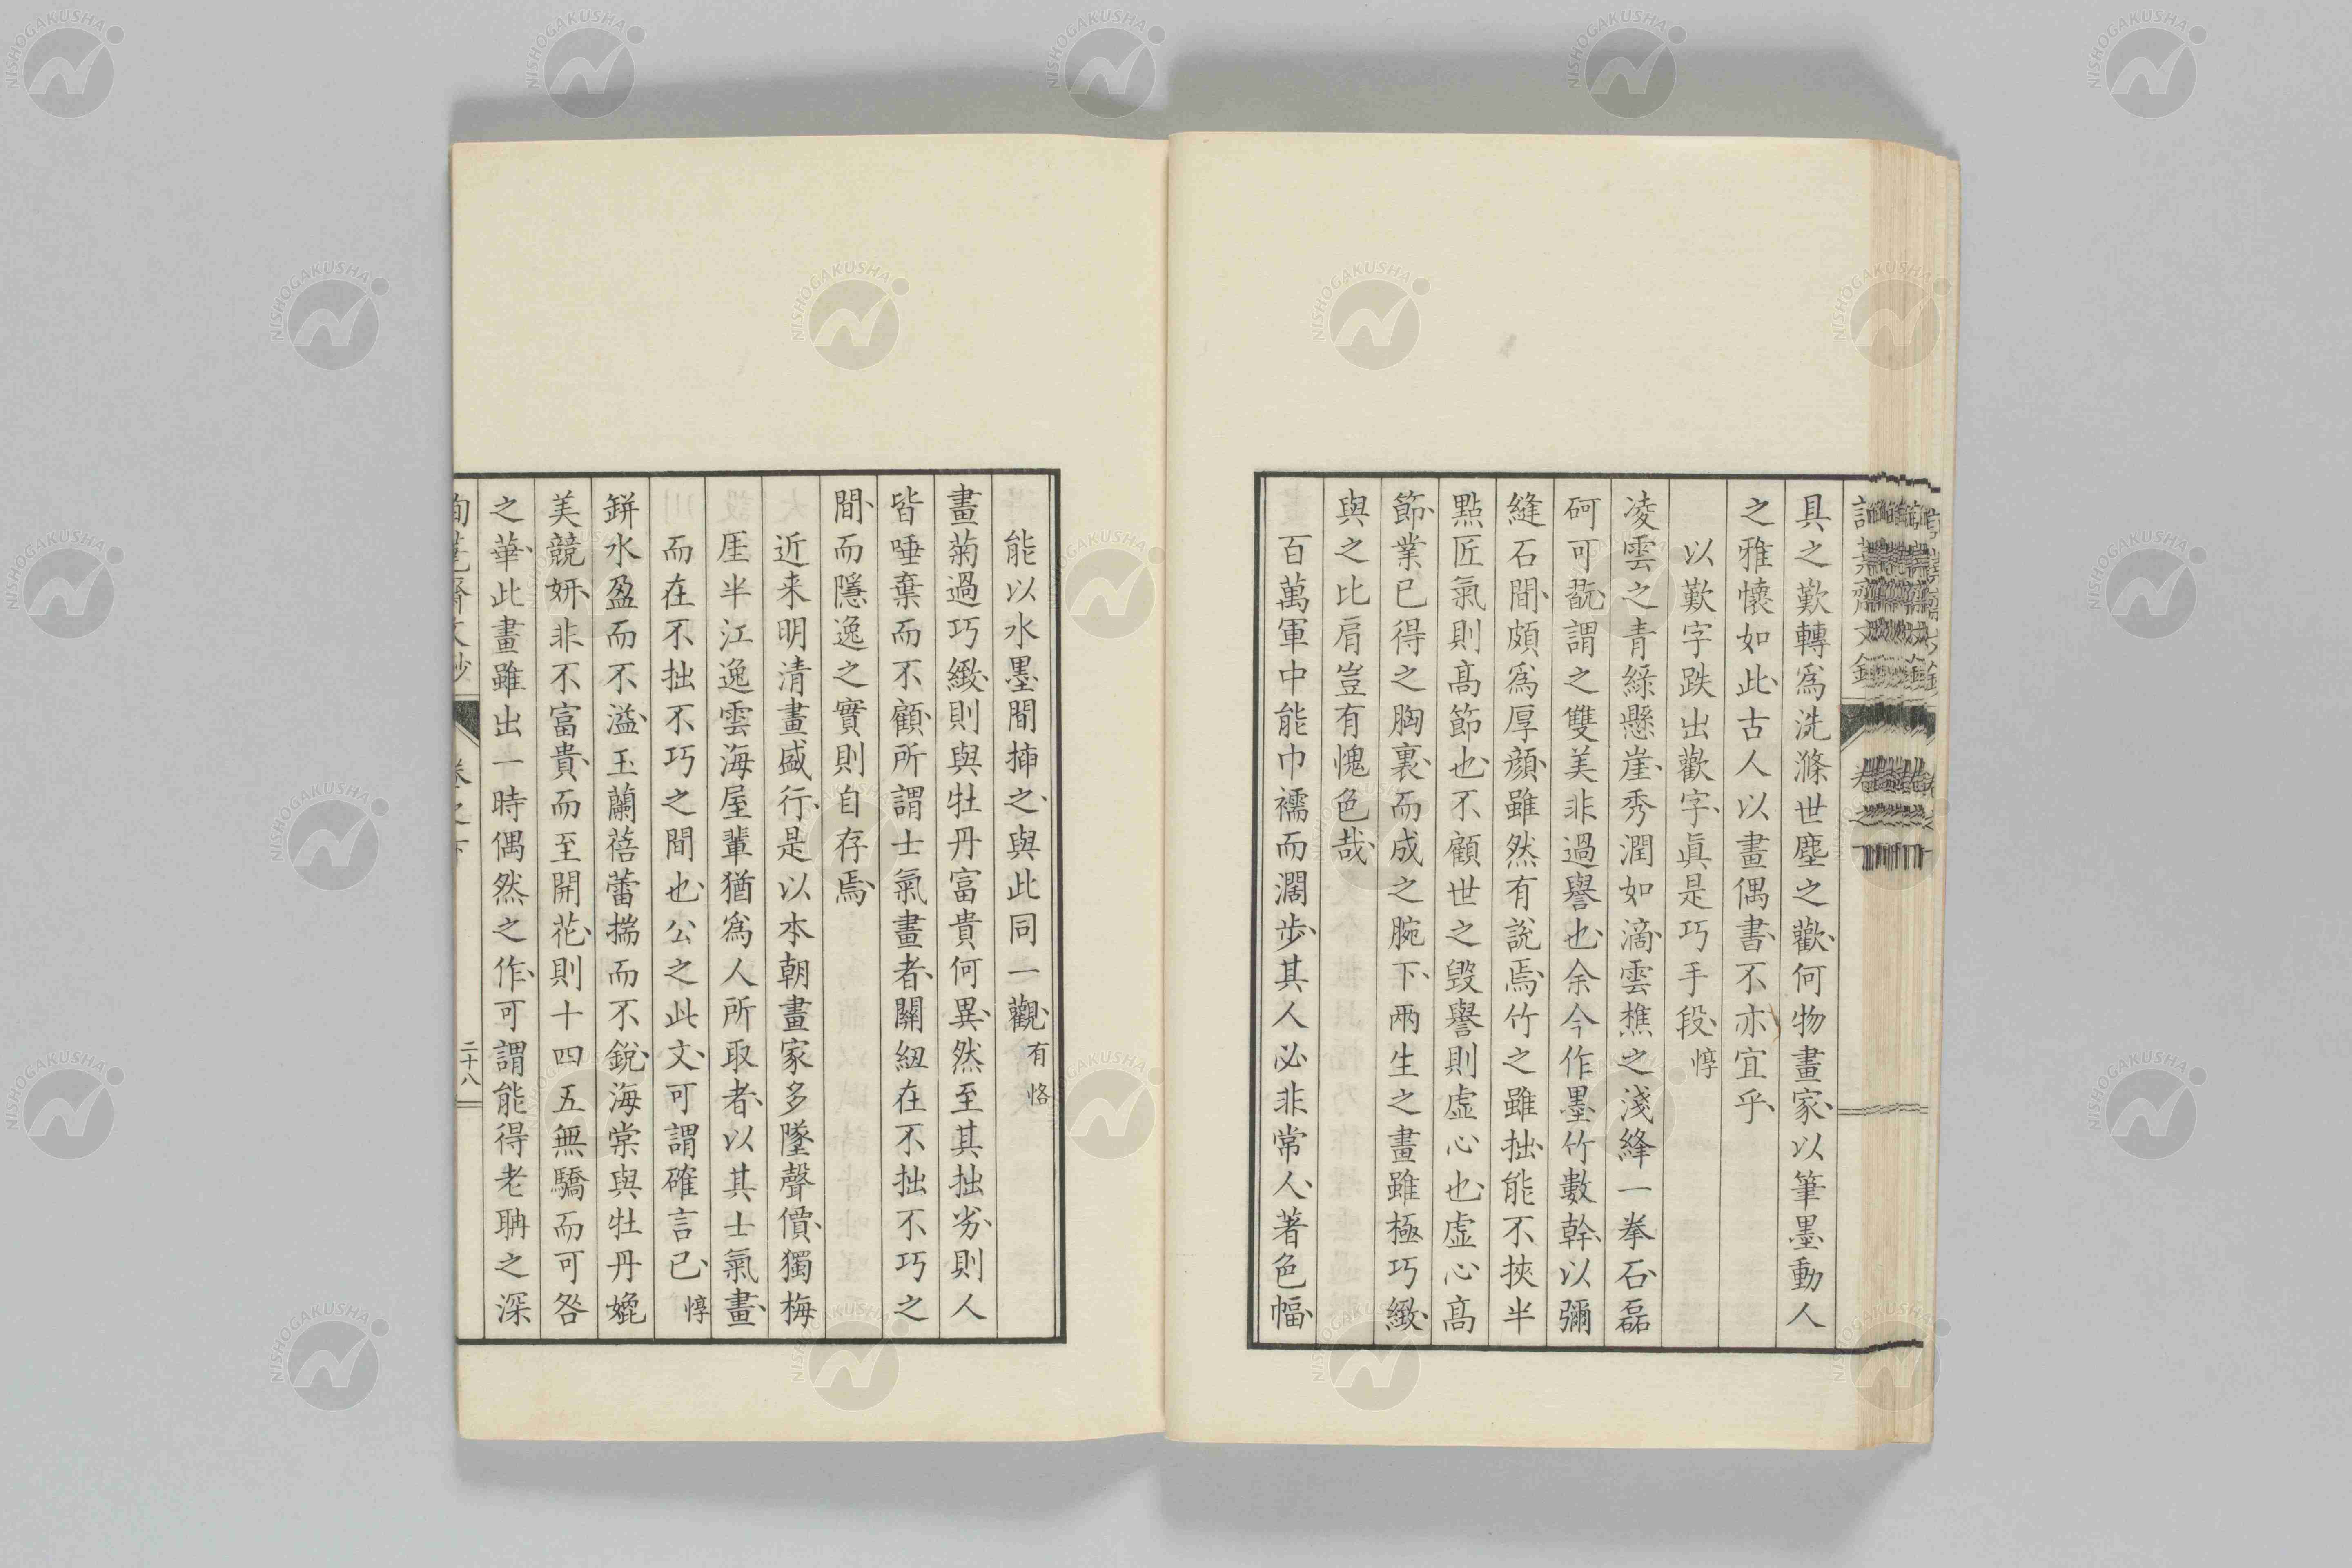 具之歎轉爲洗滌世塵之歡、何物畫家、以筆墨動人
之雅懷如此、古人以畫偶書、不亦宜乎、
以歎字跌出歡字、眞是巧手段、惇
凌雲之青綠懸崖、秀潤如滴、雲樵之淺絳一拳石、磊
砢可翫、謂之雙美非過譽也、余今作墨竹數幹、以彌
縫石間、頗爲厚顔、雖然有説焉、竹之雖拙、能不挾半
點匠氣則高節也、不顧世之毀譽則虛心也、虛心高
節、業已得之胸裏、而成之腕下、兩生之畫雖極巧緻、
與之比肩豈有愧色哉、
百萬軍中能巾襦而濶歩、其人必非常人、著色幅、
能以水墨間揷之、與此同一觀、有恪
畫菊過巧緻、則與牡丹富貴何異、然至其拙劣、則人
皆唾棄而不顧、所謂士氣畫者、關紐在不拙不巧之
間、而隱逸之實則自存焉、
近来明清畫盛行、是以本朝畫家多墜聲價、獨梅
厓半江逸雲海屋輩猶爲人所取者、以其士氣畫、
而在不拙不巧之間也、公之此文、可謂確言已、惇
缾水盈而不溢、玉蘭蓓蕾揣而不銳、海棠與牡丹媲
美競姸、非不富貴、而至開花、則十四五無驕而可咎
之華、此畫雖出一時偶然之作、可謂能得老聃之深
二十八
NISHOGAKUSHA